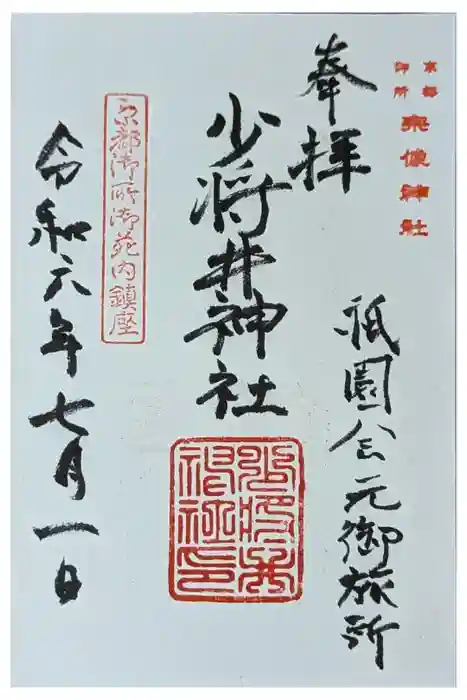 京都
御所
宗像神社
奉拝
祇園会元御旅所
少将井神社
少将井
神社印
京都御所御苑内鎮座
令和六年七月一日